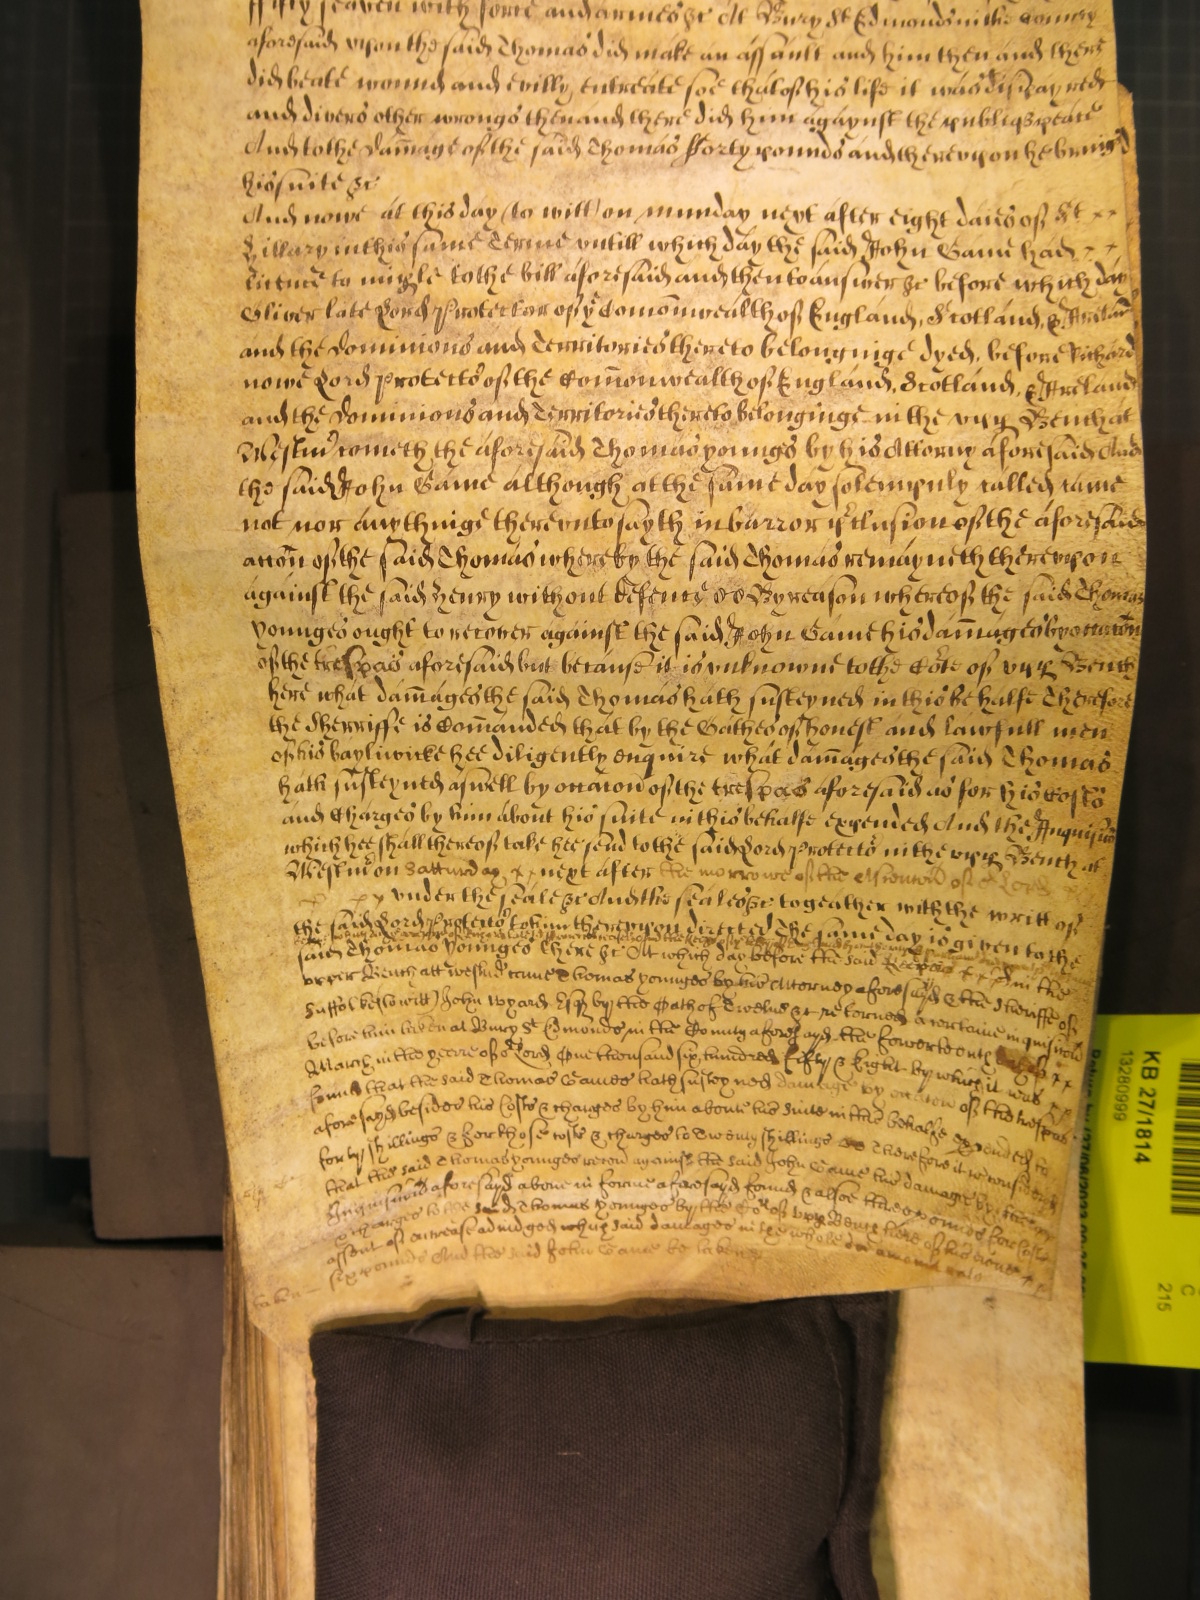 ffifty seaven with force and armes &c At Bury St Edmonds in the County
aforesaid vpon the said Thomas did make an assault and him then and there
did beate wound and evilly entreate soe that of his life it was dispayred
and divers other wrongs then and there did him agaynst the publiq peace
And to the damage of the said Thomas fforty pounds and therevpon he bringeth
his suite &c
And nowe at this day (to witt) on munday next after eight daies of St
Hillary in this same Terme vntill which day the said John Game had
licence to imple to the bill aforesaid and then to answer &c before which day
Oliver late Lord Protector of ye Comonwealth of England, Scotland, & Ireland
and the Dominions and Territories thereto belonginge dyed, before Richard
nowe Lord Protector of the Comonwealth of England, Scotland, & Ireland
and the Dominions and Territories thereto belonginge in the vpp Bench at
Westmr cometh the aforesaid Thomas younges by his Attorny aforesaid And
the said John Game although at the same day solempnly called came
not nor anythinge therevnto sayth in barr or p'clusion of the aforesaid
accon of the said Thomas whereby the said Thomas remayneth therevpon
against the said Henry without defence &c By reason whereof the said Thomas
younges ought to recover against the said John Game his damages by occacon
of the trespas aforesaid but because it is vnknowne to the Cote of vpp Bench
here what damages the said Thomas hath susteyned in this behalfe Therefore
the Sherriffe is Comanded that by the Oathes of honest and lawfull men
of his bayliwicke hee diligently enquire what damages the said Thomas
hath susteyned aswell by occacon of the trespas aforesaid as for his Costs
and Charges by him about his suite in this behalfe expended And the Inquisicon
which hee shall thereof take hee send to the said Lord Protector in the vpp Bench at
Westmr on Satturday next after the morrowe of the Ascencon of Lord
vnder the seale &c And the seales &c togeather with the writt of
the said Lord Protector to him therevpon directed The same day is given to the
said Thomas younges there &c At which day before the said in the
vpper Bench att westmr came Thomas younges by his Attorney aforesayd & the Sheriffe of
Suffolke (to witt) John wyard Esqr by the Oath of Twelve &c returned a certaine inquisicon
before him taken at Bury St Edmonds in the County aforesayd the
March in the yeere of or Lord One thousand six hundred fifty & Eight by which it was
found that the said Thomas Games hath susteyned damage by occacon of the trespas
aforesayd besides his Costs & charges by him about his suite in this behalfe expended to
forty shillings & for those costs & charges to Twenty shillings Therefore it is considered
that the said Thomas younges recover against the said John Game his damages by the
Inquisicon aforesayd above in forme aforesayd found & alsoe three pounds for Costs
& charges to the sayd Thomas younges by the Cort of vpp Bench here of his
assent of increase adiudged which said damages in the whole doe amount vnto
six pounds And the said John Game be taken
KB 27/1814
13280999
C
215